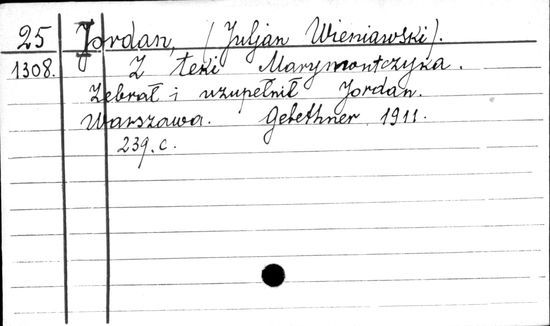 25 Jordan, (Juljan Wieniawski).
1308. Z teki Marymontczyka.
Zebrał i uzupełnił Jordan.
Warszawa. Gebethner 1911.
239. c.